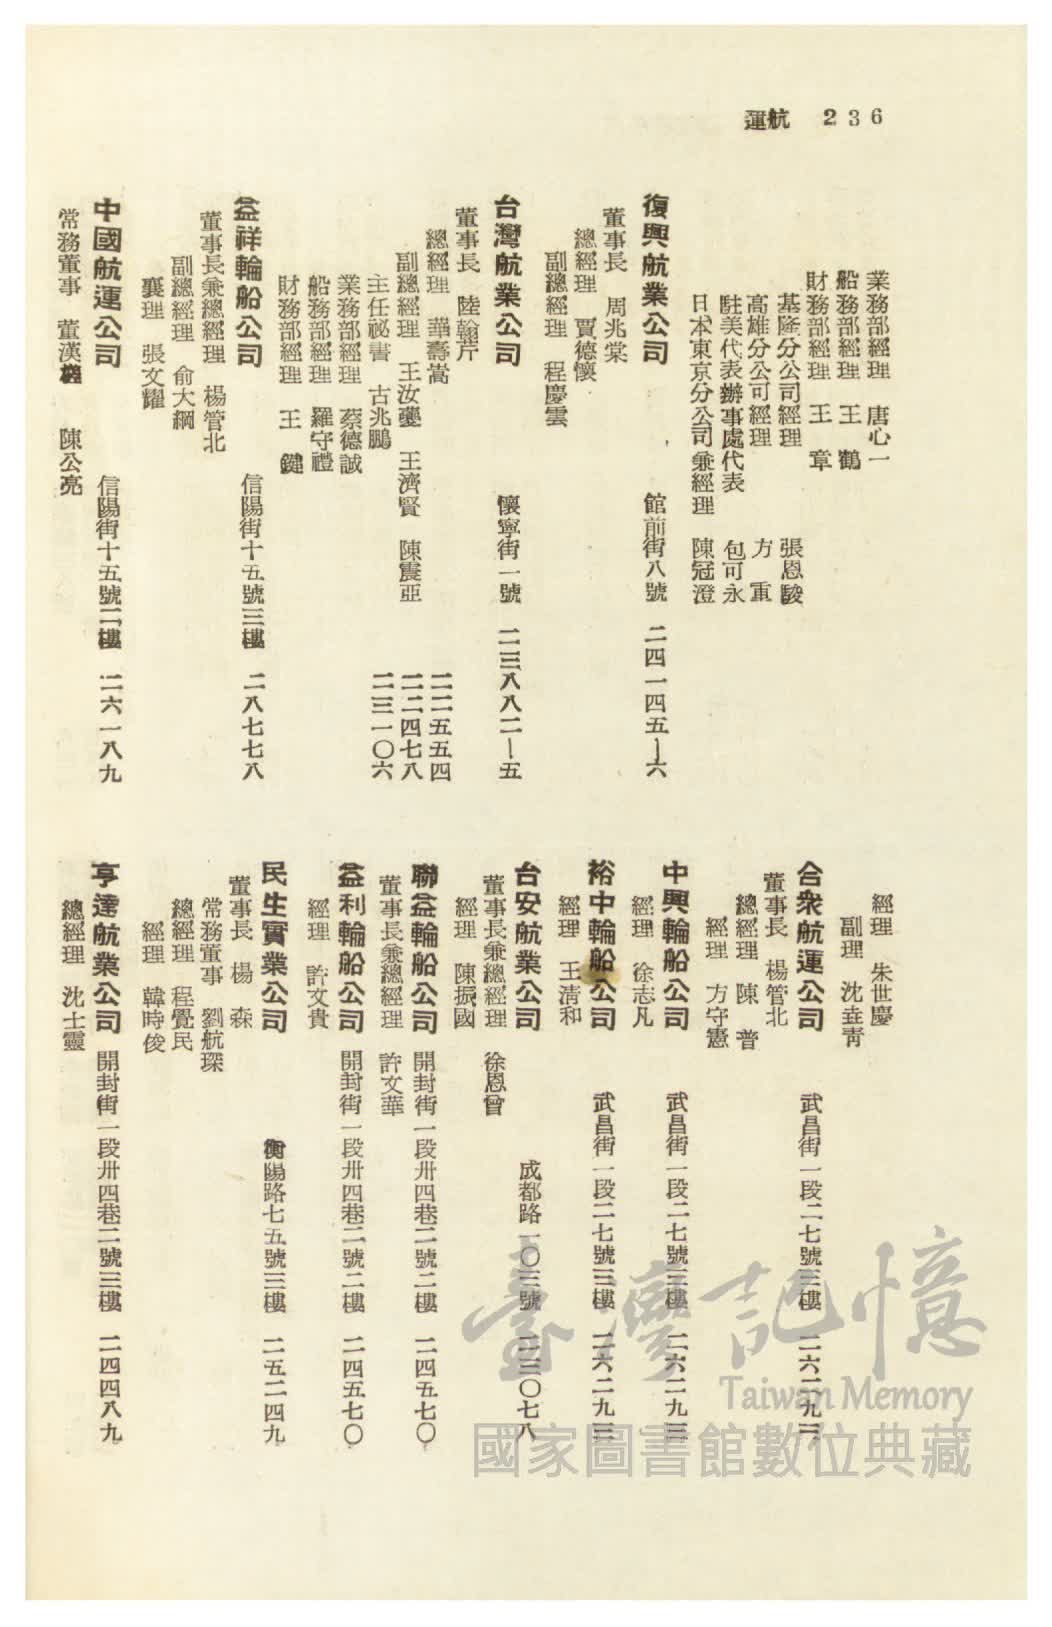 航運 236
業務部經理 唐心一
船務部經理 王 鶴
財務部經理 王 章
基隆分公司經理 張恩駿
高雄分公司經理 方 重
駐美代表辦事處代表 包可永
日本東京分公司兼經理 陳冠澄
復興航業公司 館前街八號 二四一四五—六
董事長 周兆棠
總經理 賈德懷
副總經理 程慶雲
台灣航業公司 懷寧街一號 二三八八二—五
董事長 陸翰芹
總經理 華壽嵩 二二五五四
副總經理 王汝 王濟賢 陳震亞 二二四七八
主任祕書 古兆鵬 二三一〇六
業務部經理 蔡德誠
船務部經理 羅守禮
財務部經理 王 鍵
益祥輪船公司 信陽街十五號三樓 二八七七八
董事長兼總經理 楊管北
副總經理 俞大綱
襄理 張文耀
中國航運公司 信陽街十五號二樓 二六一八九
常務董事 董漢槎 陳公亮
經理 朱世慶
副理 沈垚靑
合衆航運公司 武昌街一段二七號三樓 二六二九三
董事長 楊管北
總經理 陳 普
經理 方守憲
中興輪船公司 武昌街一段二七號三樓 二六二九三
經理 徐志凡
裕中輪船公司 武昌街一段二七號三樓 二六二九三
經理 王淸和
台安航業公司 成都路一〇三號 二三〇七八
董事長兼總經理 徐恩曾
經理 陳振國
聯益輪船公司 開封街一段卅四巷二號二樓 二四五七〇
董事長兼總經理 許文華
益利輪船公司 開封街一段卅四巷二號二樓 二四五七〇
經理 許文貴
民生實業公司 衡陽路七五號三樓 二五二四九
董事長 楊 森
常務董事 劉航琛
總經理 程覺民
經理 韓時俊
亨達航業公司 開封街一段卅四巷二號三樓 二四四八九
總經理 沈士靈
臺灣記憶
Taiwan Memory
國家圖書館數位典藏